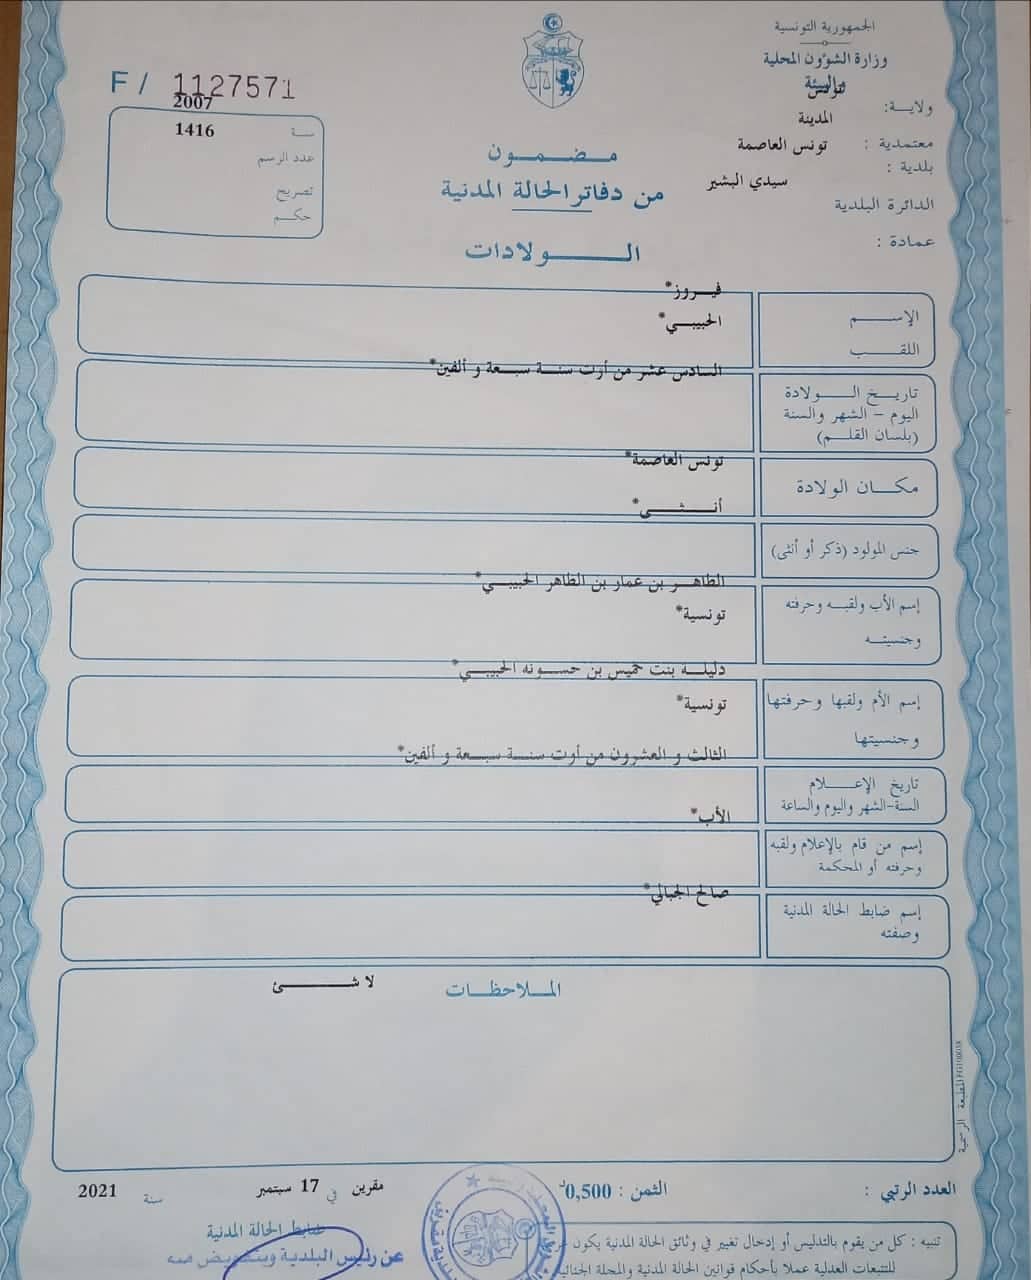 الجمهورية التونسية
وزارة الشؤون المحلية
والبيئة
تونس
ولاية:
المدينة
معتمدية :
تونس العاصمة
بلدية :
سيدي البشير
الدائرة البلدية
عمادة :
F / 1127571
2007
سنة
1416
عدد الرسم
تصريح
حكم
مضمون
من دفاتر الحالة المدنية
الولادات
فيروز*
الإسم
الحبيبي*
اللقب
السادس عشر من أوت سنة سبعة و ألفين*
تاريخ الولادة
اليوم - الشهر والسنة
(بلسان القلم)
تونس العاصمة*
مكان الولادة
أنثى*
جنس المولود (ذكر أو أنثى)
الطاهر بن عمار بن الطاهر الحبيبي*
إسم الأب ولقبه وحرفته
تونسية*
وجنسيته
دليلة بنت خميس بن حسونه الحبيبي*
إسم الأم ولقبها وحرفتها
تونسية*
وجنسيتها
الثالث و العشرون من أوت سنة سبعة و ألفين*
تاريخ الإعلام
السنة-الشهر واليوم والساعة
الأب*
إسم من قام بالإعلام ولقبه
وحرفته أو المحكمة
صالح الجبالي*
إسم ضابط الحالة المدنية
وصفته
الملاحظات
لا شئ
المطبعة الرسمية
العدد الرتبي :
الثمن : 0,500د
مقرين في 17 سبتمبر سنة 2021
ضابط الحالة المدنية
عن رئيس البلدية وبتفويض منه
تنبيه : كل من يقوم بالتدليس أو إدخال تغيير في وثائق الحالة المدنية يكون
للتتبعات العدلية عملا بأحكام قوانين الحالة المدنية والمجلة الجنائية